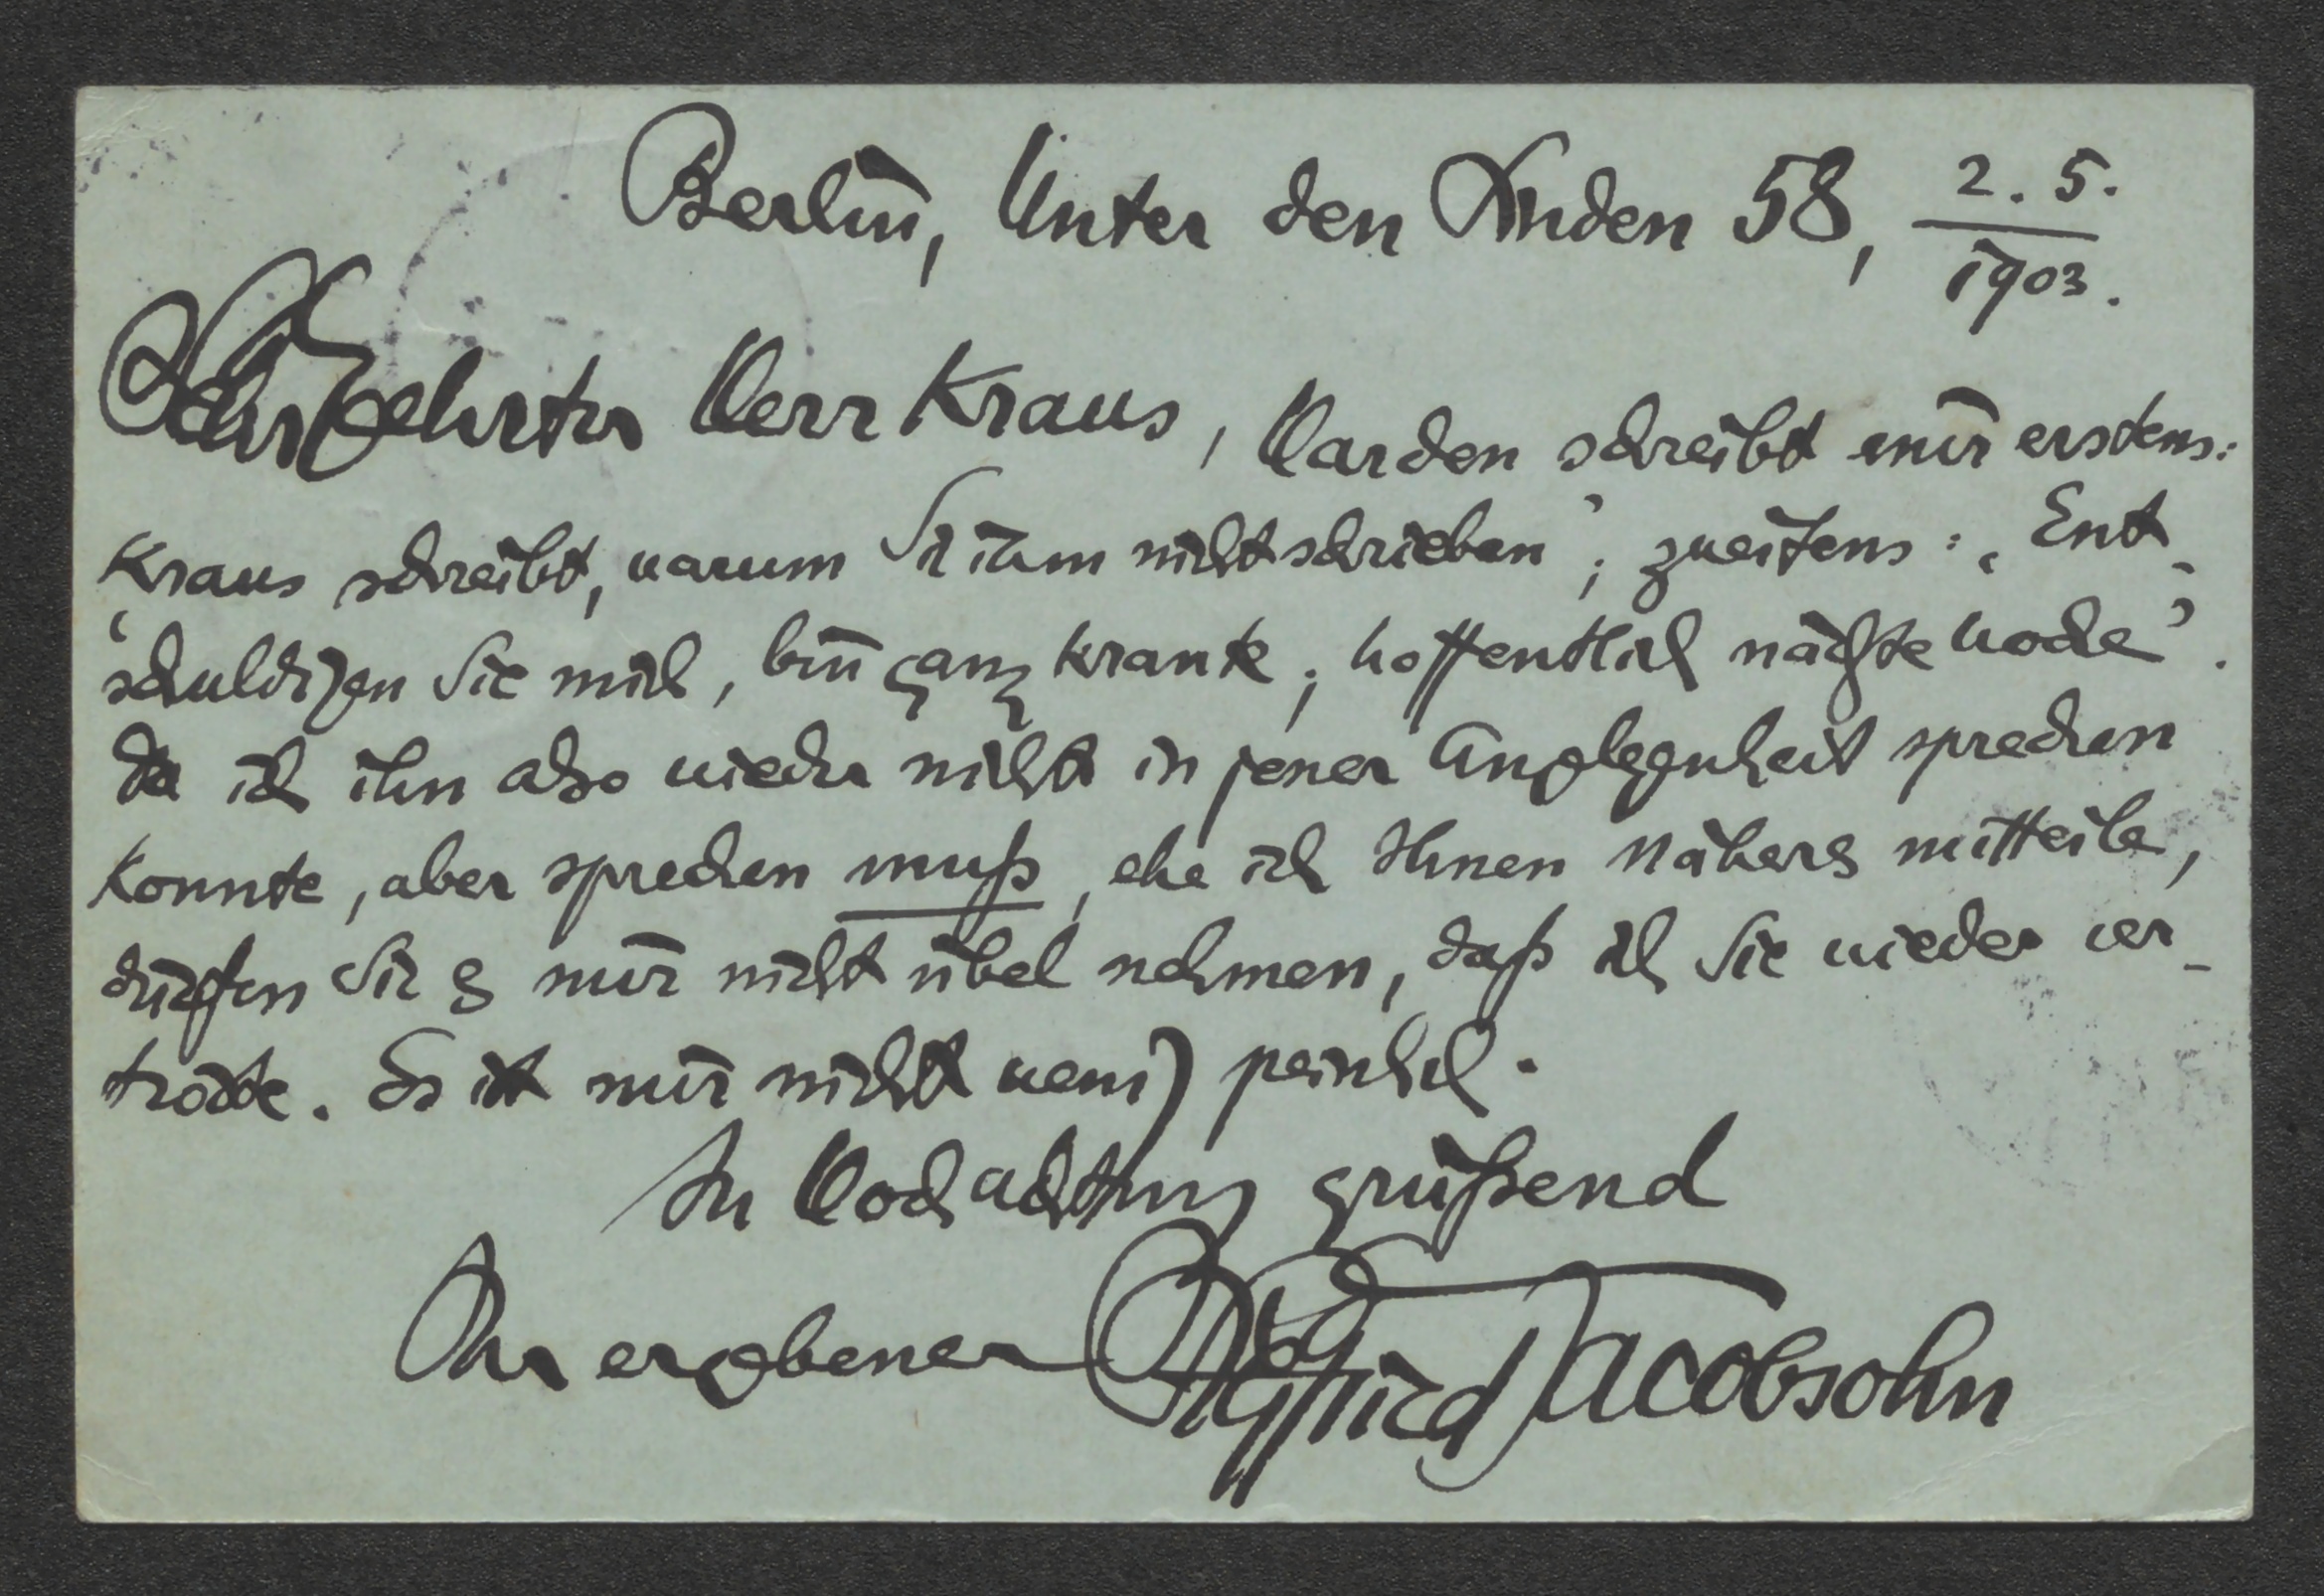 Berlin, Unter den Linden 58, 2. 5. 1903.
Sehr geehrter Herr Kraus, Harden schreibt mir erstens:
„Kraus schreibt, warum Sie ihm nicht schrieben“; zweitens: „Ent-
schuldigen Sie mich, bin ganz krank; hoffentlich nächste Woche“.
Da ich ihn also wieder nicht in jener Angelegenheit sprechen
konnte, aber sprechen muß, ehe ich Ihnen Näheres mitteile,
dürfen Sie es mir nicht übel nehmen, daß ich Sie wieder ver-
tröste. Es ist mir nicht wenig peinlich.
In Hochachtung grüßend
Ihr ergebener Siegfried Jacobsohn